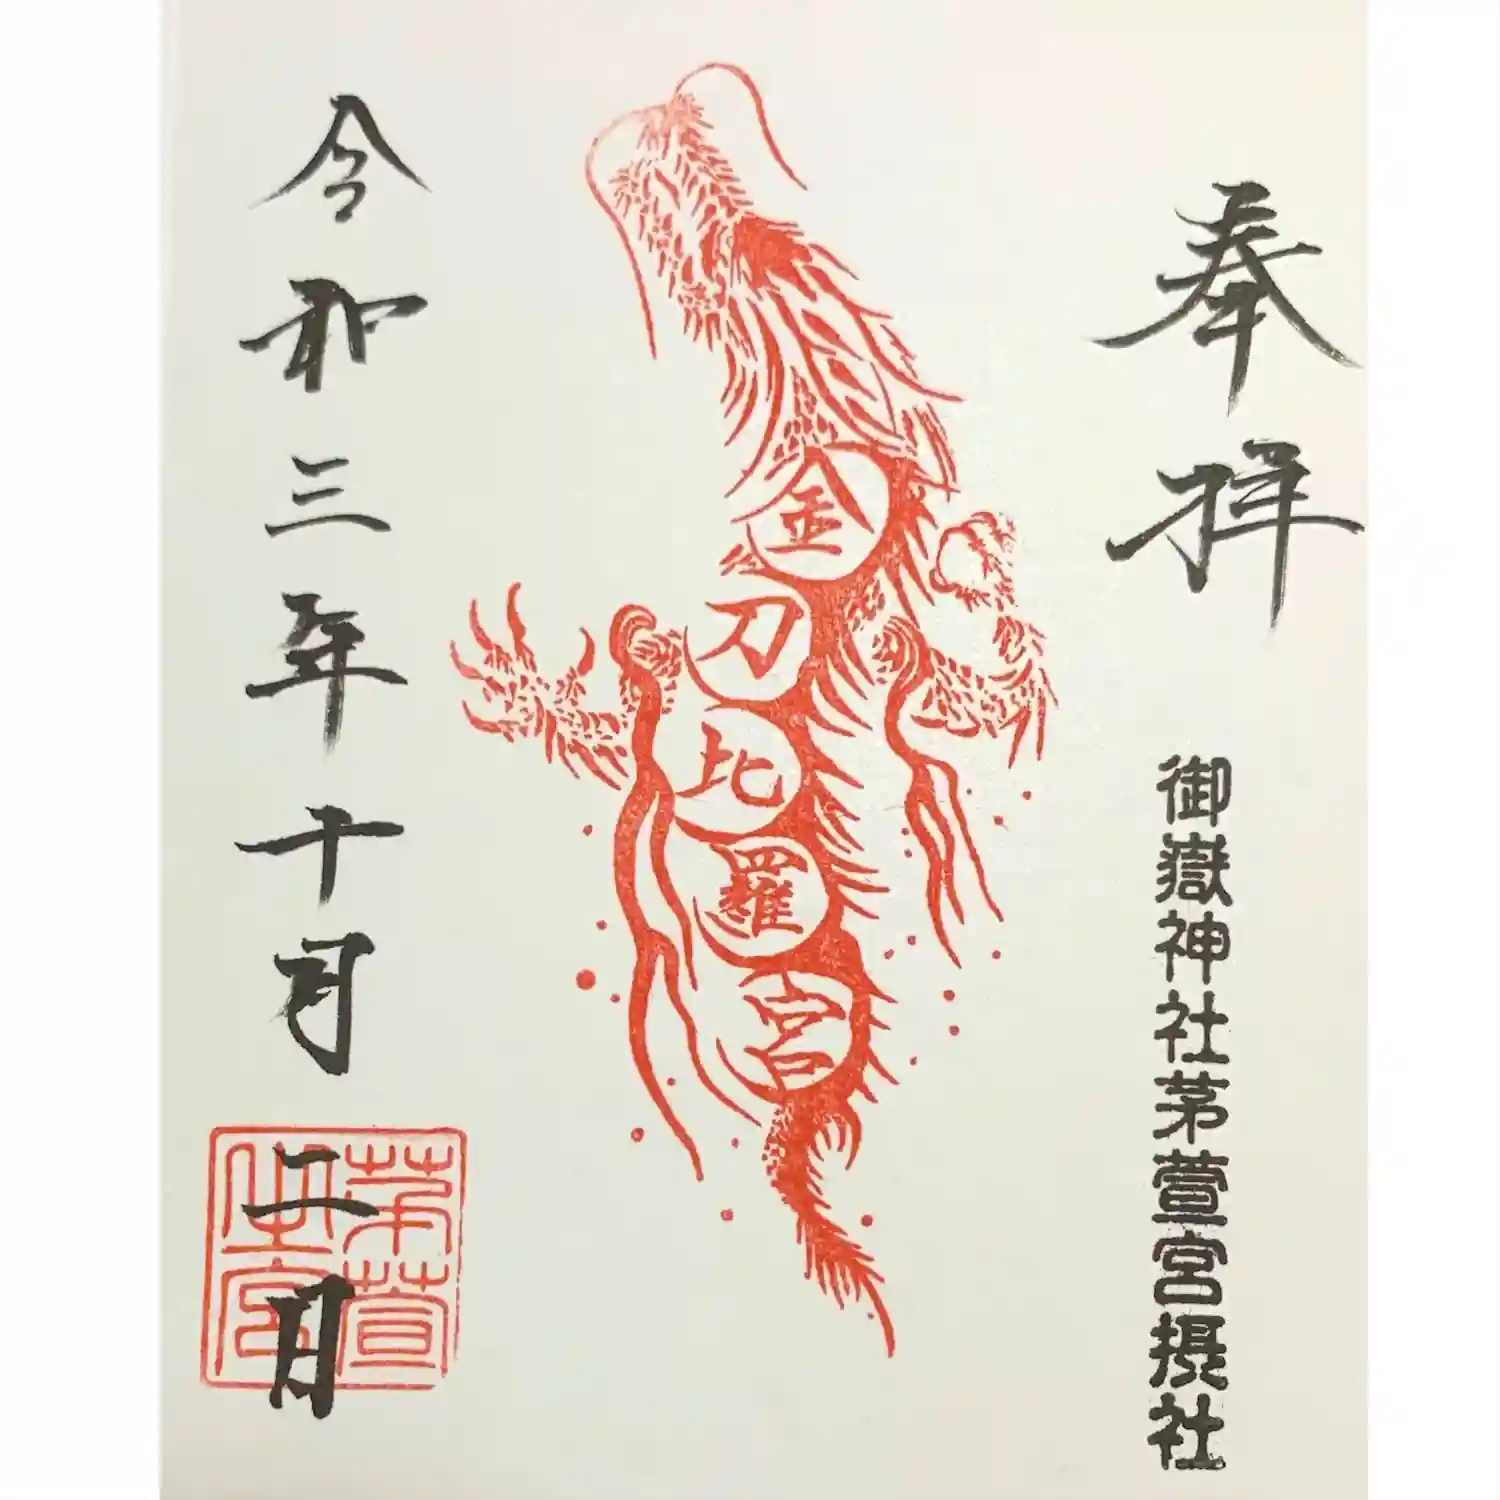 奉拝
御嶽神社茅萱宮摂社
金刀比羅宮
令和三年十月二日
茅萱